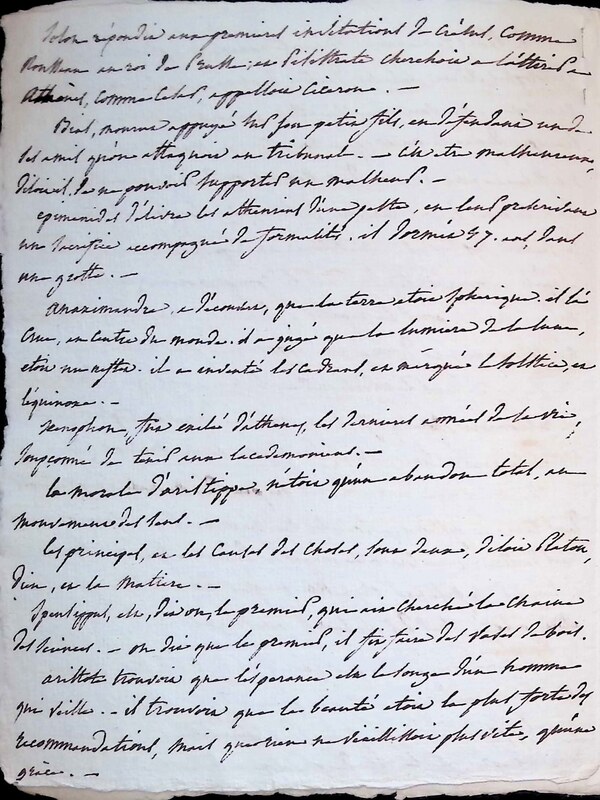 Solon répondit aux premieres invitations de Crésus, Comme
Rousseau au roi de Prusse; et Pisistrate cherchoit a l'attirer a
Athènes, Comme César, appelloit Ciceron. —
Bias, mourut appuyé sur son petit fils, en défendant un de
ses amis qu'on attaquoit au tribunal. — C'est etre malheureux,
disoit il, de ne pouvoir supporter un malheur. —
epimenides délivra les atheniens d'une peste, en leur prescrivant
un Sacrifice accompagné de formalités. il dormit 57. ans, dans
une grotte. —
Anaximandre, a découvert, que la terre etoit Spherique. il la
crut, au Centre du monde. il a jugé que la lumiere de la lune,
etoit un reflet. il a inventé les Cadrans, et marqué le Solstice, et
l'équinoxe. —
xenophon, fut exilé d'athenes, les dernieres années de sa vie,
Soupçonné de tenir aux lacedemoniens. —
la morale d'aristippe, n'étoit qu'un abandon total, au
mouvement des sens. —
les principes, et les Causes des Choses, sont deux, disoit Platon,
dieu, et la matiere. —
Speusippus, est, dit on, le premier, qui ait Cherché la chaine
des sciences. — on dit que le premier, il fit faire des Vases de bois.
aristote trouvoit que l'ésperance est le songe d'un homme
qui veille. — il trouvoit que la beauté etoit la plus forte des
recommandations, mais que rien ne vieillissoit plus vite, qu'une
grâce. —